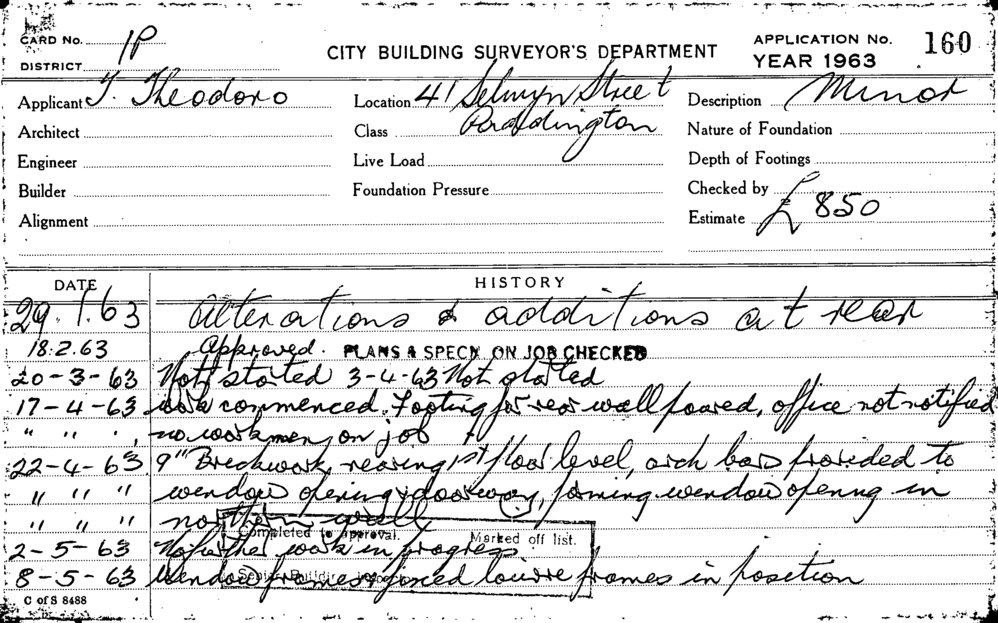 CARD No. 1P
CITY BUILDING SURVEYOR'S DEPARTMENT
APPLICATION No. 160
DISTRICT
YEAR 1963
Applicant T. Theodoro
Location 41 Selwyn Street
Description Minor
Architect
Class Paddington
Nature of Foundation
Engineer
Live Load
Depth of Footings
Builder
Foundation Pressure
Checked by
Alignment
Estimate £ 850
DATE HISTORY
29.1.63 Alterations & additions at rear
18.2.63 Approved. PLANS & SPECN ON JOB CHECKED
20-3-63 Not started 3-4-63 Not started
17-4-63 work commenced. Footing for rear wall poured, office not notified
" " " no workmen on job
22-4-63 9" Brickwork nearing 1st floor level, arch bars provided to
" " " window opening & doorway, forming window opening in
" " " northern wall
Completed to approval. Marked off list.
2-5-63 No further work in progress
8-5-63 Window frames fixed louvre frames in position
C of S 8488